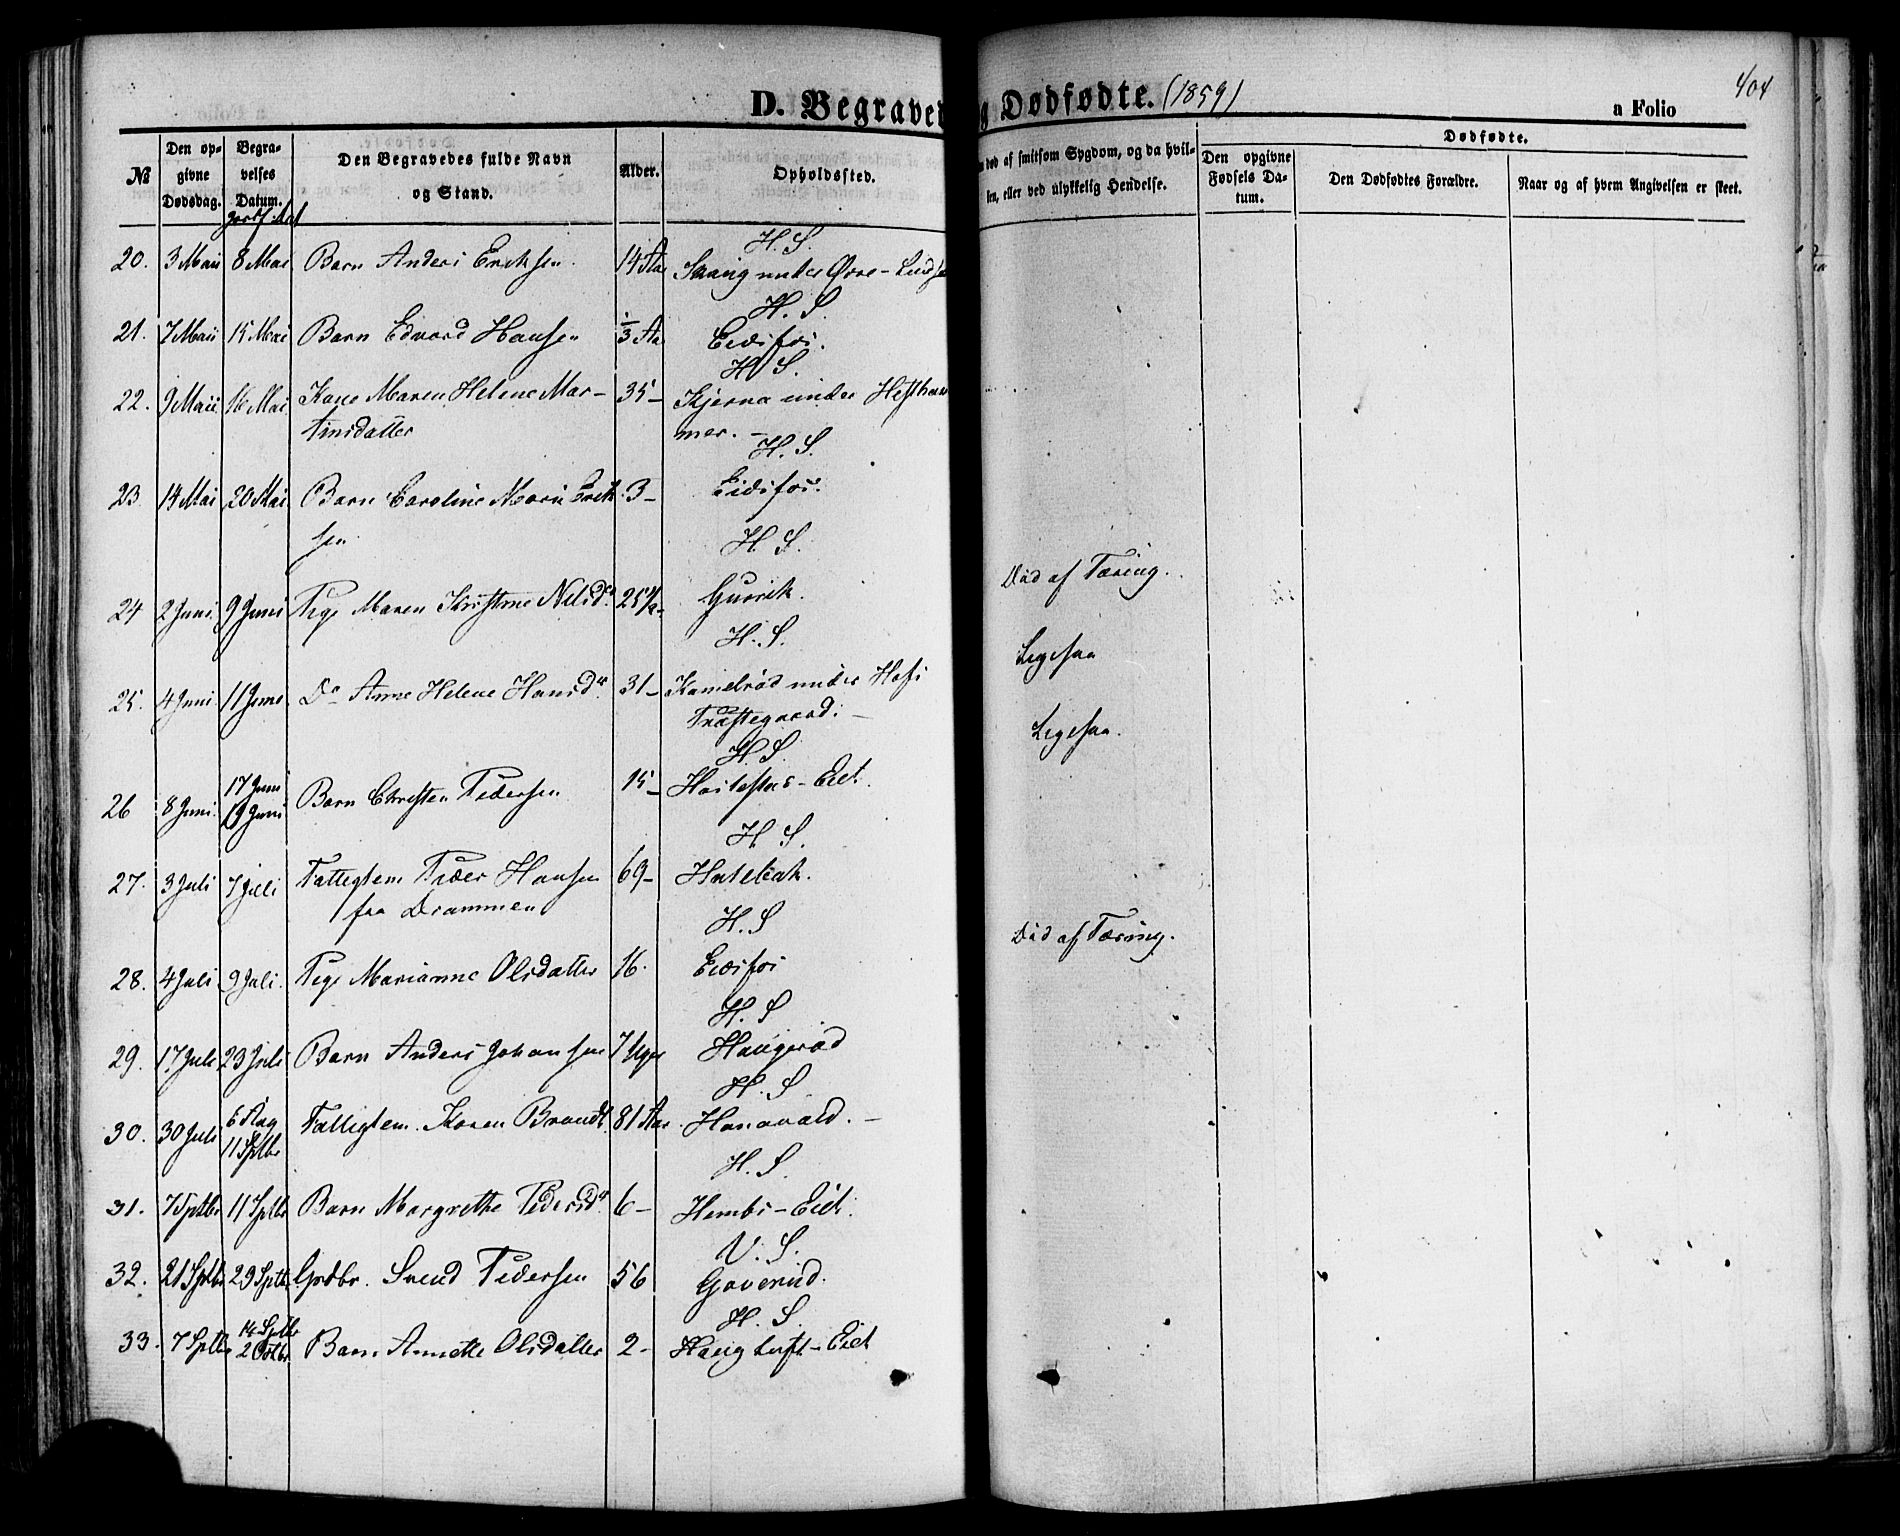 D. Begraver
g Dødfødte. (1859)
a Folio
404
№
Den op-
givne
Dødsdag.
Begra-
velses
Datum.
Den Begravedes fulde Navn
og Stand.
Alder.
Opholdssted.
død af smitsom Sygdom, og da hvil-
ken, eller ved ulykkelig Hendelse.
Dødfødte.
Den opgivne
Fødsels Da-
tum.
Den Dødfødtes Forældre.
Naar og af hvem Angivelsen er skeet.
H. S.
20. 3 Maii 8 Mai Barn Anders Eriksen 14 Aar under Øvre-
H. S.
21. 7 Maii 15 Mai Barn Edvard Hansen 1/3 Aar Eidsfos.
H. S.
22. 9 Maii 16 Mai Kone Maren Helene Mar- 35- Kjerna under Hestham
tinsdatter mer. -
H. S.
23. 14 Mai 20 Mai Barn Caroline Marie Erik 3- Eidsfos.
sen
H. S.
24 2 Juni 9 Juni Pige Maren Kristine Nilsdr 25 Gusrik. Død af Tæring.
H. S.
25. 4 Juni 11 Juni Do Anne Helene Hansdr 31- under Hofs Ligesaa
Præstegaard. -
H. S.
17 Juni
26 8 Juni 19 Juni Barn Christen Pedersen 15- -Eiet. Ligesaa.
H. S.
27. 3 Juli 7 Juli Fattiglem Peder Hansen 69-
fra Drammen
H. S
28. 4 Juli 9 Juli. Pige Marianne Olsdatter 16. Eidsfos Død af Tæring.
H. S
29. 17 Juli 23 Juli Barn Anders Johansen 7 Uger Haugerød
H. S
6 Aug
30. 30 Juli 11 Sptbr Fattiglem Karen Brandt 81 Aar Hanavald. -
H. S.
31. 7 Sptbr 11 Sptbr Barn Margrethe Pedersdr 6- Hembs-Eiet.
V. S.
32. 21 Sptbr 29 Sptbr Grdbr. Svend Pedersen 56 Goverud.
H. S.
14 Sptbr
33. 7 Sptbr 2 Octbr Barn Annette Olsdatter 2- Haug -Eiet